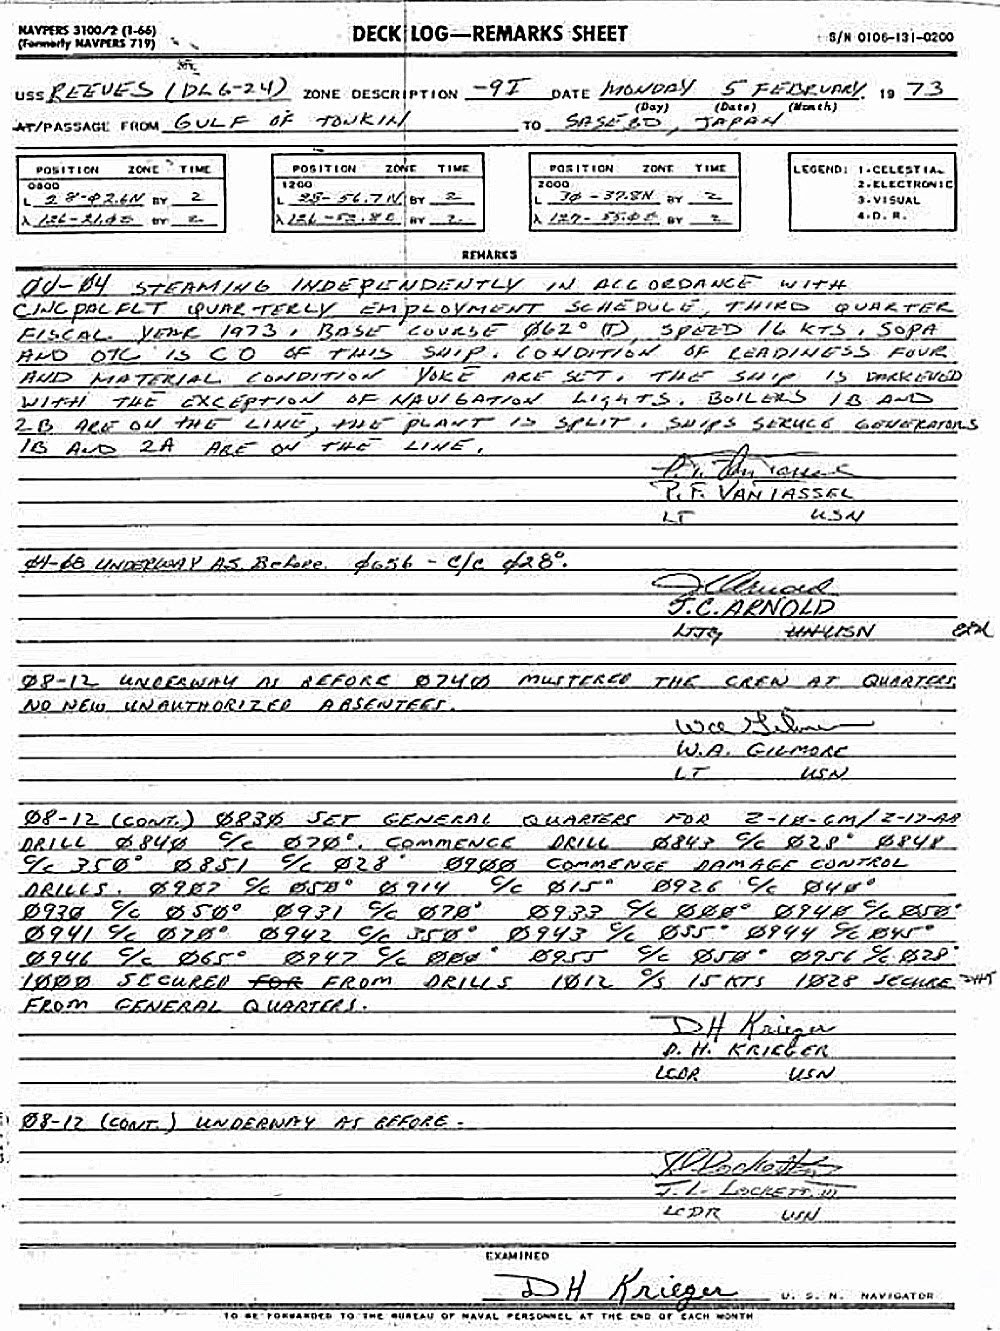 NAVPERS 3100/2 (1-66)
(Formerly NAVPERS 719)
DECK LOG—REMARKS SHEET
S/N 0106-131-0200
USS REEVES (DLG-24) ZONE DESCRIPTION -9I DATE MONDAY 5 FEBRUARY 19 73
(Day) (Date) (Month)
AT/PASSAGE FROM GULF OF TONKIN TO SASEBO, JAPAN
POSITION ZONE TIME
0800
L 28-02.6N BY 2
λ 126-21.0E BY 2
POSITION ZONE TIME
1200
L 28-56.7N BY 2
λ 126-52.8E BY 2
POSITION ZONE TIME
2000
L 30-37.8N BY 2
λ 127-55.0E BY 2
LEGEND: 1-CELESTIAL
2-ELECTRONIC
3-VISUAL
4-D. R.
REMARKS
00-04 STEAMING INDEPENDENTLY IN ACCORDANCE WITH
CINCPACFLT QUARTERLY EMPLOYMENT SCHEDULE, THIRD QUARTER
FISCAL YEAR 1973. BASE COURSE Ø62° (T), SPEED 16 KTS. SOPA
AND OTC IS CO OF THIS SHIP. CONDITION OF READINESS FOUR
AND MATERIAL CONDITION YOKE ARE SET. THE SHIP IS DARKENED
WITH THE EXCEPTION OF NAVIGATION LIGHTS. BOILERS 1B AND
2B ARE ON THE LINE, THE PLANT IS SPLIT. SHIPS SERVICE GENERATORS
1B AND 2A ARE ON THE LINE.
P. F. VANTASSEL
LT USN
Ø4-Ø8 UNDERWAY AS Before. Ø656 - C/C Ø28°.
J C Arnold
J.C. ARNOLD
LTJG USN
Ø8-12 UNDERWAY AS BEFORE Ø74Ø MUSTERED THE CREW AT QUARTERS,
NO NEW UNAUTHORIZED ABSENTEES.
W.A. GILMORE
LT USN
Ø8-12 (CONT.) Ø83Ø SET GENERAL QUARTERS FOR Z-10-GM/Z-17-AA
DRILL Ø84Ø C/C Ø7Ø°. COMMENCE DRILL Ø843 C/C Ø28° Ø848
C/C 35Ø° Ø851 C/C Ø28° Ø9ØØ COMMENCE DAMAGE CONTROL
DRILLS. Ø9Ø7 C/C Ø5Ø° Ø914 C/C Ø15° Ø926 C/C Ø4Ø°
Ø93Ø C/C Ø5Ø° Ø931 C/C Ø7Ø° Ø933 C/C ØØØ° Ø94Ø C/C Ø5Ø°
Ø941 C/C Ø7Ø° Ø942 C/C 35Ø° Ø943 C/C Ø35° Ø944 C/C Ø45°
Ø946 C/C Ø65° Ø947 C/C ØØØ° Ø955 C/C Ø5Ø° Ø956 C/C Ø28°
1ØØØ SECURED FOR FROM DRILLS 1Ø12 C/S 15 KTS 1Ø28 SECURE
FROM GENERAL QUARTERS.
DH Krieger
D. H. KRIEGER
LCDR USN
Ø8-12 (CONT.) UNDERWAY AS BEFORE.
J. L. LOCKETT III
LCDR USN
EXAMINED
DH Krieger U. S. N. NAVIGATOR
TO BE FORWARDED TO THE BUREAU OF NAVAL PERSONNEL AT THE END OF EACH MONTH